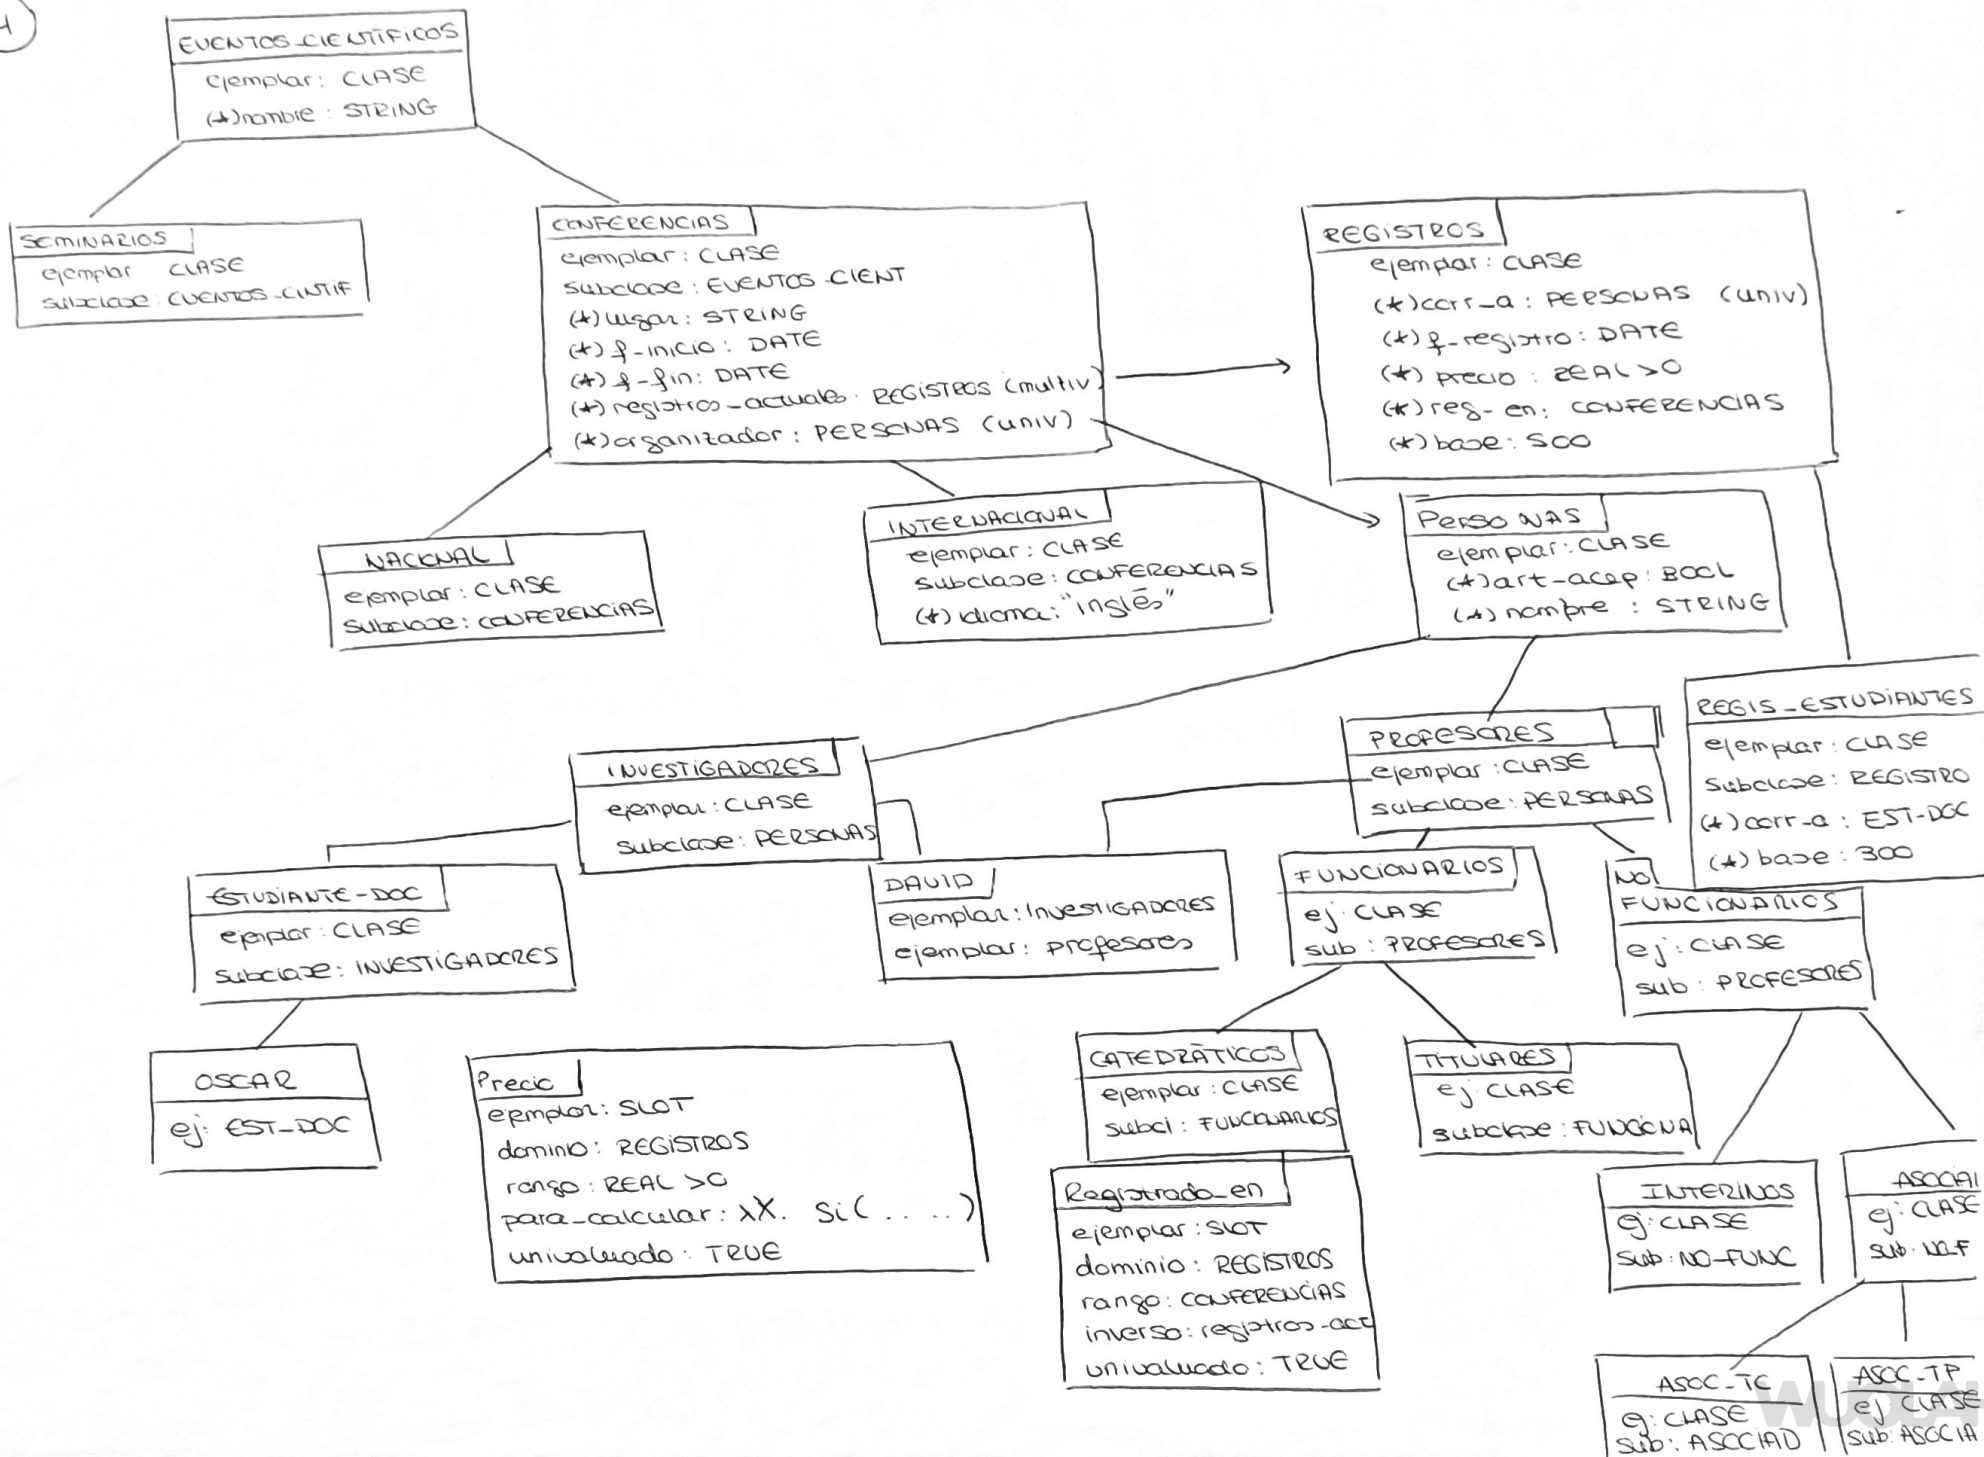 4
EVENTOS_CIENTÍFICOS
ejemplar: CLASE
(*)nombre: STRING
SEMINARIOS
ejemplar CLASE
subclase: EVENTOS_CINTIF
CONFERENCIAS
ejemplar: CLASE
subclase: EVENTOS_CIENT
(*) lugar: STRING
(*) f-inicio: DATE
(*) f-fin: DATE
(*) registros-actuales: REGISTROS (multiv)
(*) organizador: PERSONAS (univ)
REGISTROS
ejemplar: CLASE
(*) corr_a: PERSONAS (univ)
(*) f-registro: DATE
(*) precio: REAL >0
(*) reg-en: CONFERENCIAS
(*) base: 500
NACIONAL
ejemplar: CLASE
subclase: CONFERENCIAS
INTERNACIONAL
ejemplar: CLASE
subclase: CONFERENCIAS
(*) idioma: "inglés"
PERSONAS
ejemplar: CLASE
(*) art-acep: BOOL
(*) nombre: STRING
REGIS_ESTUDIANTES
ejemplar: CLASE
subclase: REGISTRO
(*) corr-a: EST-DOC
(*) base: 300
INVESTIGADORES
ejemplar: CLASE
subclase: PERSONAS
PROFESORES
ejemplar: CLASE
subclase: PERSONAS
ESTUDIANTE-DOC
ejemplar: CLASE
subclase: INVESTIGADORES
DAVID
ejemplar: INVESTIGADORES
ejemplar: profesores
FUNCIONARIOS
ej: CLASE
sub: PROFESORES
NO
FUNCIONARIOS
ej: CLASE
sub: PROFESORES
OSCAR
ej: EST-DOC
Precio
ejemplar: SLOT
dominio: REGISTROS
rango: REAL >0
para_calcular: λX. Si( . . . . )
univaluado: TRUE
CATEDRÁTICOS
ejemplar: CLASE
subcl: FUNCIONARIOS
TITULARES
ej: CLASE
subclase: FUNCIONA
Registrado_en
ejemplar: SLOT
dominio: REGISTROS
rango: CONFERENCIAS
inverso: registros-act
univaluado: TRUE
INTERINOS
ej: CLASE
sub: NO-FUNC
ASOCIA
ej: CLASE
sub: NO-F
ASOC_TC
ej: CLASE
sub: ASOCIAD
ASOC_TP
ej CLASE
sub: ASOCIA
WUOLAH